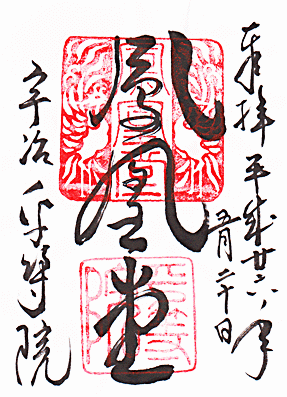 奉拝 平成廿六年
五月二十日
鳳凰堂
宇治 平等院